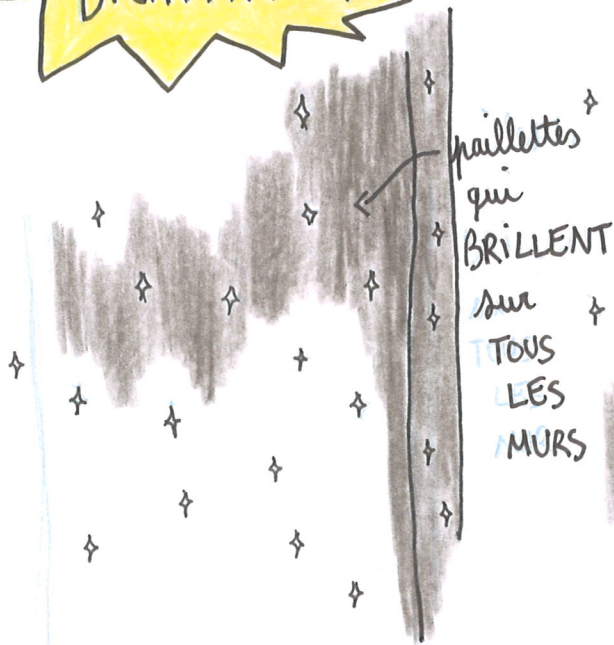 paillettes
qui
BRILLENT
sur
TOUS
LES
MURS